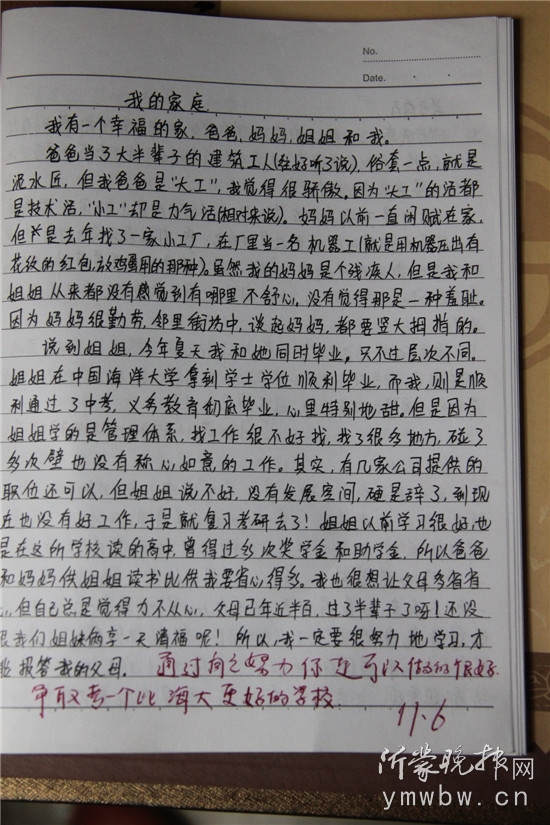 No.
Date.
我的家庭
我有一个幸福的家,爸爸,妈妈,姐姐和我。
爸爸当了大半辈子的建筑工人(在好听了说),俗套一点,就是
泥水匠,但我爸爸是“大工”,我觉得很骄傲。因为“大工”的活都
是技术活,“小工”却是力气活(相对来说)。妈妈以前一直闲赋在家,
但是去年找了一家小工厂,在厂里当一名机器工(就是用机器压出有
花纹的红包,放鸡蛋用的那种)。虽然我的妈妈是个残疾人,但是我和
姐姐从来都没有感觉到有哪里不舒心,没有觉得那是一种羞耻。
因为妈妈很勤劳,邻里街坊中,谈起妈妈,都要竖大拇指的。
说到姐姐,今年夏天我和她同时毕业。只不过层次不同。
姐姐在中国海洋大学拿到学士学位顺利毕业,而我,则是顺
利通过了中考,义务教育彻底毕业,心里特别地甜。但是因为
姐姐学的是管理体系,找工作很不好找,找了很多地方,碰了
多次壁也没有称心如意的工作。其实,有几家公司提供的
职位还可以,但姐姐说不好,没有发展空间,硬是辞了,到现
在也没有好工作,于是就复习考研去了!姐姐以前学习很好,也
是在这所学校读的高中,曾得过多次奖学金和助学金,所以爸爸
和妈妈供姐姐读书比供我要省心得多。我也很想让父母多省省
心,但自己总是觉得力不从心,父母已年近半百,过了半辈子了呀!还没
跟我们姐妹俩享一天清福呢!所以,我一定要很努力地学习,才
能报答我的父母。 通过自己努力你是可以做的很好
争取考一个比海大更好的学校
11.6
沂蒙晚报网
ymwbw.cn